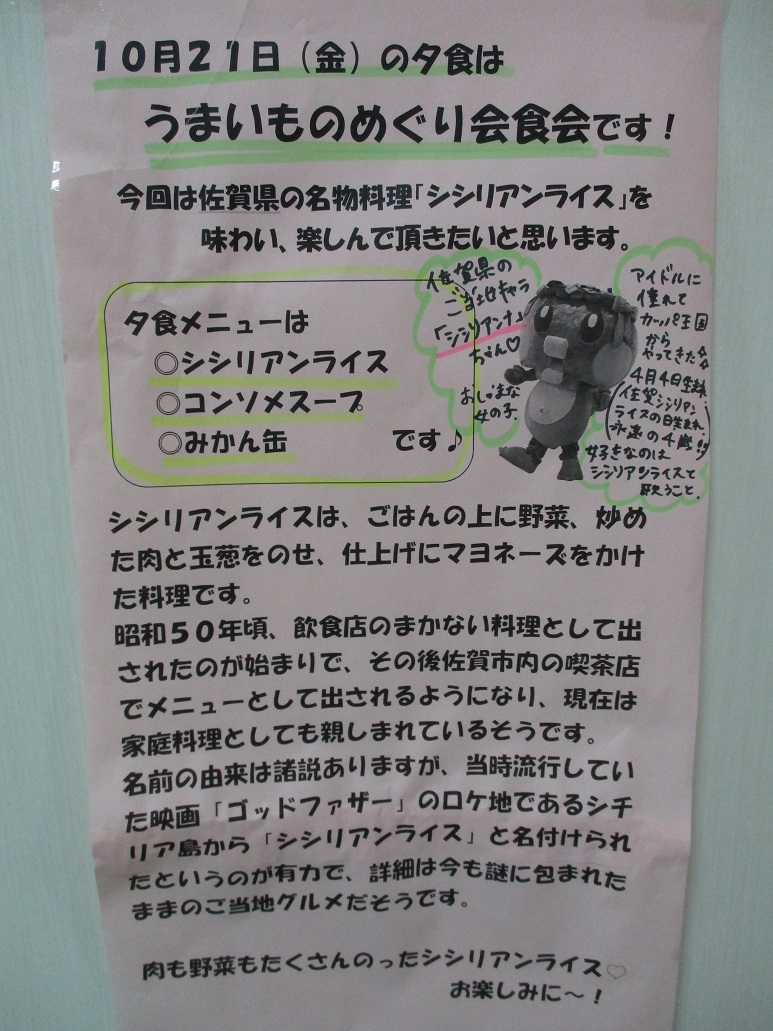 10月21日（金）の夕食は
うまいものめぐり会食会です！
今回は佐賀県の名物料理「シシリアンライス」を
味わい、楽しんで頂きたいと思います。
夕食メニューは
◎シシリアンライス
◎コンソメスープ
◎みかん缶　です♪
佐賀県の
ご当地キャラ
「シシリアンナ」
ちゃん♡
おしゃまな
女の子.
アイドルに
憧れて
カッパ王国
から
やってきた☆
4月4日生まれ.
佐賀シシリアン
ライスの日生まれ
永遠の4歳!!
好きなのは
シシリアンライスと
歌うこと.
シシリアンライスは、ごはんの上に野菜、炒め
た肉と玉葱をのせ、仕上げにマヨネーズをかけ
た料理です。
昭和５０年頃、飲食店のまかない料理として出
されたのが始まりで、その後佐賀市内の喫茶店
でメニューとして出されるようになり、現在は
家庭料理としても親しまれているそうです。
名前の由来は諸説ありますが、当時流行してい
た映画「ゴッドファザー」のロケ地であるシチ
リア島から「シシリアンライス」と名付けられ
たというのが有力で、詳細は今も謎に包まれた
ままのご当地グルメだそうです。
肉も野菜もたくさんのったシシリアンライス♡
お楽しみに～！